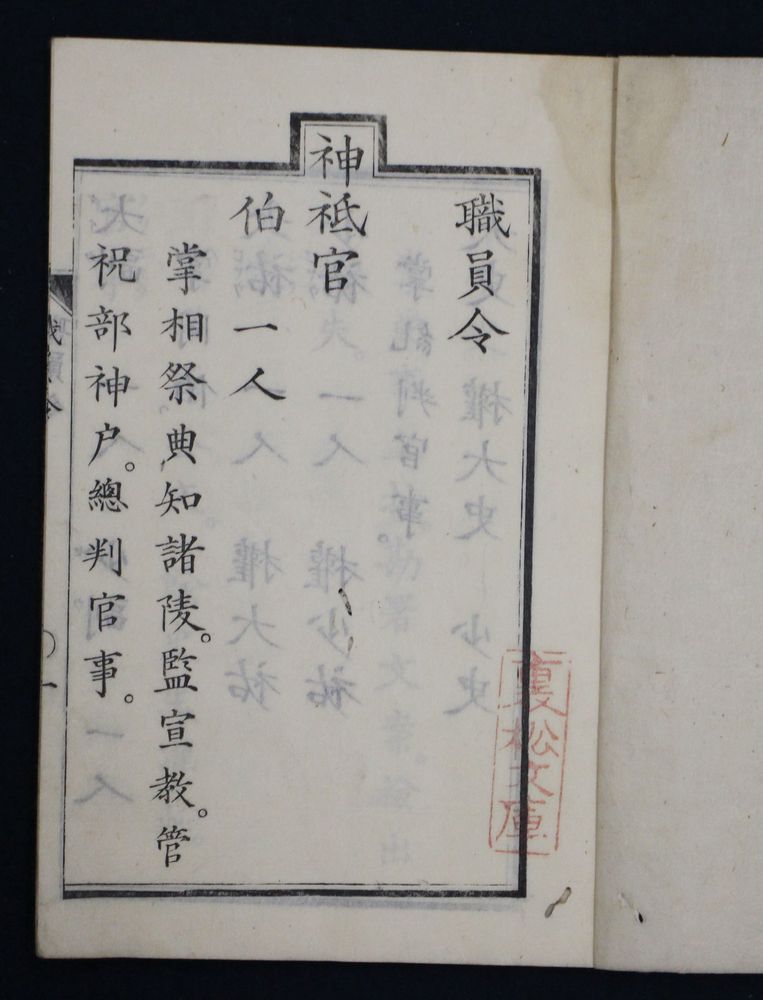 職員令
神祇官
伯一人
掌相祭典知諸陵。監宣教。管
祝部神戸。總判官事。
松文庫